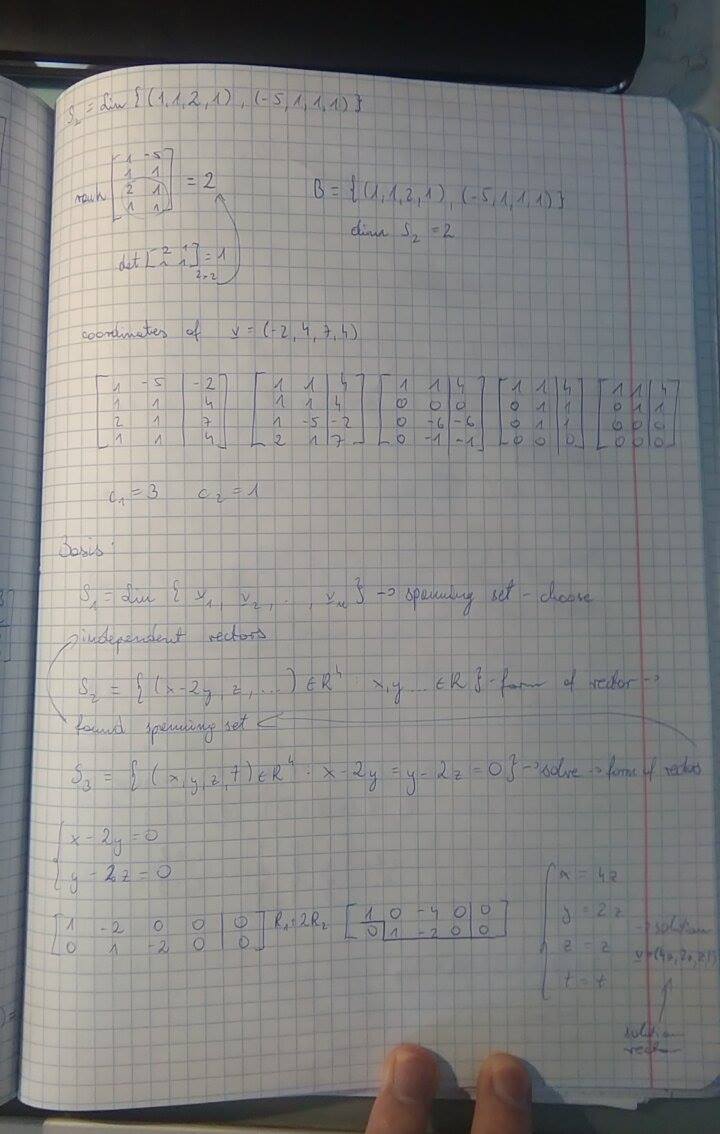 S₂ = lin {(1,1,2,1), (-5,1,1,1)}
rank [1 -5; 1 1; 2 1; 1 1] = 2
B = {(1,1,2,1), (-5,1,1,1)}
dim S₂ = 2
det [2 1; 1 1]₂ₓ₂ = 1
coordinates of v = (-2, 4, 7, 4)
[1 -5 | -2; 1 1 | 4; 2 1 | 7; 1 1 | 4] [1 1 | 4; 1 1 | 4; 1 -5 | -2; 2 1 | 7] [1 1 | 4; 0 0 | 0; 0 -6 | -6; 0 -1 | -1] [1 1 | 4; 0 1 | 1; 0 1 | 1; 0 0 | 0] [1 1 | 4; 0 1 | 1; 0 0 | 0; 0 0 | 0]
c₁ = 3 c₂ = 1
Basis:
S₁ = lin { v₁, v₂, .., vₙ} → spanning set - choose
independent vectors
S₂ = { (x-2y, z, ...) ∈ R⁴ : x, y ... ∈ R } - form of vector →
found spanning set
S₃ = { (x, y, z, t) ∈ R⁴ : x - 2y = y - 2z = 0} → solve → form of vector
{ x - 2y = 0
y - 2z = 0
[1 -2 0 0 | 0; 0 1 -2 0 | 0] R₁+2R₂ [1 0 -4 0 | 0; 0 1 -2 0 | 0]
{ x = 4z
y = 2z
z = z
t = t
→ solution
v = (4z, 2z, z, t)
solution
vector